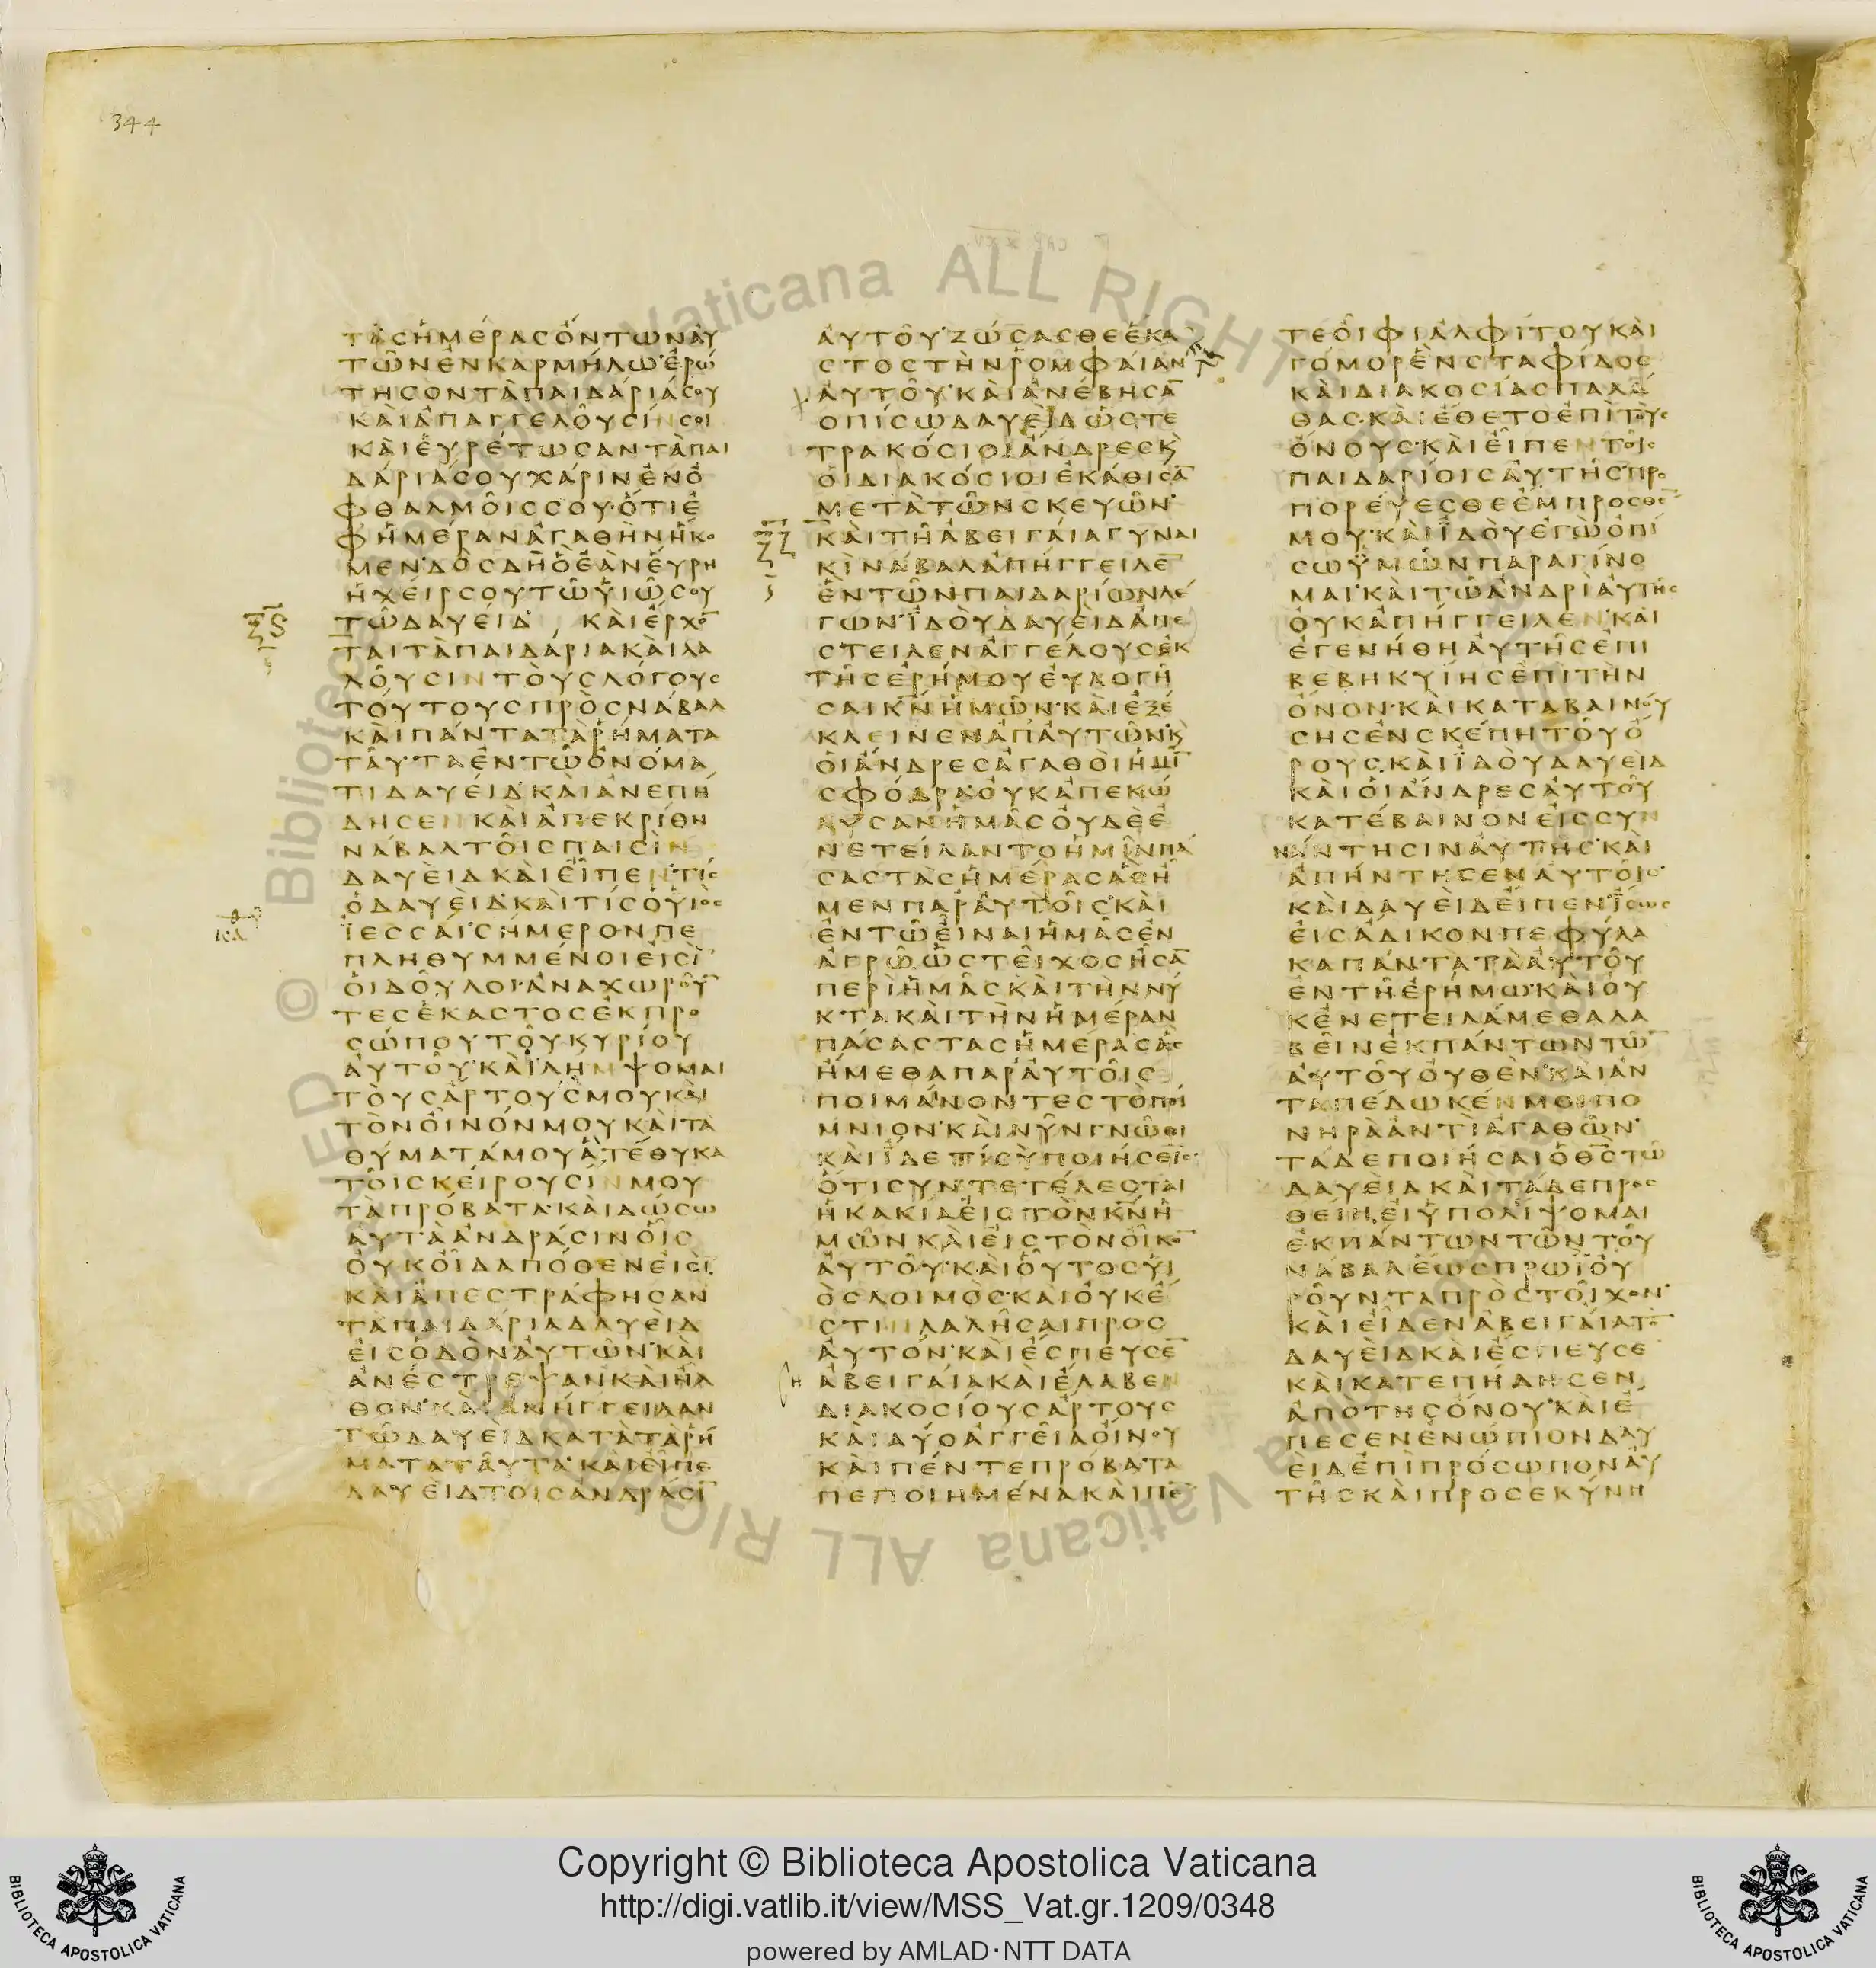 344
ΤΑΣ ΗΜΕΡΑΣ ΟΝΤΩΝ ΑΥ
ΤΩΝ ΕΝ ΚΑΡΜΗΛΩ ΕΡΩ
ΤΗΣΟΝ ΤΑ ΠΑΙΔΑΡΙΑ ΣΟΥ
ΚΑΙ ΑΠΑΓΓΕΛΟΥΣΙΝ ΣΟΙ
ΚΑΙ ΕΥΡΕΤΩΣΑΝ ΤΑ ΠΑΙ
ΔΑΡΙΑ ΣΟΥ ΧΑΡΙΝ ΕΝ Ο
ΦΘΑΛΜΟΙΣ ΣΟΥ· ΟΤΙ Ε
Φ ΗΜΕΡΑΝ ΑΓΑΘΗΝ ΗΚΟ
ΜΕΝ· ΔΟΣ ΔΗ Ο ΕΑΝ ΕΥΡΗ
Η ΧΕΙΡ ΣΟΥ ΤΩ ΥΙΩ ΣΟΥ
ΤΩ ΔΑΥΕΙΔ ΚΑΙ ΕΡΧΟ̅
ΤΑΙ ΤΑ ΠΑΙΔΑΡΙΑ ΚΑΙ ΛΑ
ΛΟΥΣΙΝ ΤΟΥΣ ΛΟΓΟΥΣ
ΤΟΥΤΟΥΣ ΠΡΟΣ ΝΑΒΑΛ
ΚΑΤΑ ΠΑΝΤΑ ΤΑ ΡΗΜΑΤΑ
ΤΑΥΤΑ ΕΝ ΤΩ ΟΝΟΜΑ
ΤΙ ΔΑΥΕΙΔ· ΚΑΙ ΑΝΕΠΗ
ΔΗΣΕΝ ΚΑΙ ΑΠΕΚΡΙΘΗ
ΝΑΒΑΛ ΤΟΙΣ ΠΑΙΣΙΝ
ΔΑΥΕΙΔ ΚΑΙ ΕΙΠΕΝ· ΤΙΣ
Ο ΔΑΥΕΙΔ· ΚΑΙ ΤΙΣ Ο ΥΙΟΣ
ΙΕΣΣΑΙ· ΣΗΜΕΡΟΝ ΠΕ
ΠΛΗΘΥΜΜΕΝΟΙ ΕΙΣΙ̅
ΟΙ ΔΟΥΛΟΙ· ΑΝΑΧΩΡΟΥ̅
ΤΕΣ ΕΚΑΣΤΟΣ ΕΚ ΠΡΟ
ΣΩΠΟΥ ΤΟΥ ΚΥΡΙΟΥ
ΑΥΤΟΥ· ΚΑΙ ΛΗΜΨΟΜΑΙ
ΤΟΥΣ ΑΡΤΟΥΣ ΜΟΥ ΚΑΙ
ΤΟΝ ΟΙΝΟΝ ΜΟΥ ΚΑΙ ΤΑ
ΘΥΜΑΤΑ ΜΟΥ Α ΤΕΘΥΚΑ
ΤΟΙΣ ΚΕΙΡΟΥΣΙΝ ΜΟΥ
ΤΑ ΠΡΟΒΑΤΑ· ΚΑΙ ΔΩΣΩ
ΑΥΤΑ ΑΝΔΡΑΣΙΝ ΟΙΣ
ΟΥΚ ΟΙΔΑ ΠΟΘΕΝ ΕΙΣΙ̅·
ΚΑΙ ΑΠΕΣΤΡΑΦΗΣΑΝ
ΤΑ ΠΑΙΔΑΡΙΑ ΔΑΥΕΙΔ
ΕΙΣ ΟΔΟΝ ΑΥΤΩΝ· ΚΑΙ
ΑΝΕΣΤΡΕΨΑΝ ΚΑΙ ΗΛ
ΘΟΝ· ΚΑΙ ΑΝΗΓΓΕΙΛΑΝ
ΤΩ ΔΑΥΕΙΔ ΚΑΤΑ ΤΑ ΡΗ
ΜΑΤΑ ΤΑΥΤΑ· ΚΑΙ ΕΙΠΕ
ΔΑΥΕΙΔ ΤΟΙΣ ΑΝΔΡΑΣΙ̅
ΑΥΤΟΥ· ΖΩΣΑΣΘΕ ΕΚΑ
ΣΤΟΣ ΤΗΝ ΡΟΜΦΑΙΑΝ
ΑΥΤΟΥ· ΚΑΙ ΑΝΕΒΗΣΑ̅
ΟΠΙΣΩ ΔΑΥΕΙΔ ΩΣ ΤΕ
ΤΡΑΚΟΣΙΟΙ ΑΝΔΡΕΣ Κ
ΟΙ ΔΙΑΚΟΣΙΟΙ ΕΚΑΘΙΣΑ̅
ΜΕΤΑ ΤΩΝ ΣΚΕΥΩΝ·
ΚΑΙ ΤΗ ΑΒΕΙΓΑΙΑ ΓΥΝΑΙ
ΚΙ ΝΑΒΑΛ ΑΠΗΓΓΕΙΛΕ̅
ΕΝ ΤΩΝ ΠΑΙΔΑΡΙΩΝ ΛΕ
ΓΩΝ· ΙΔΟΥ ΔΑΥΕΙΔ ΑΠΕ
ΣΤΕΙΛΕΝ ΑΓΓΕΛΟΥΣ ΕΚ
ΤΗΣ ΕΡΗΜΟΥ ΕΥΛΟΓΗ
ΣΑΙ Κ̅Ν̅ ΗΜΩΝ· ΚΑΙ ΕΞΕ
ΚΛΕΙΝΕΝ ΑΠ ΑΥΤΩΝ· Κ
ΟΙ ΑΝΔΡΕΣ ΑΓΑΘΟΙ ΗΜΙ̅
ΣΦΟΔΡΑ· ΟΥΚ ΑΠΕΚΩ
ΛΥΣΑΝ ΗΜΑΣ ΟΥΔΕ Ε
ΝΕΤΕΙΛΑΝΤΟ ΗΜΙΝ ΠΑ
ΣΑΣ ΤΑΣ ΗΜΕΡΑΣ ΑΣ Η
ΜΕΝ ΠΑΡ ΑΥΤΟΙΣ· ΚΑΙ
ΕΝ ΤΩ ΕΙΝΑΙ ΗΜΑΣ ΕΝ
ΑΓΡΩ ΩΣ ΤΕΙΧΟΣ ΗΣΑ̅
ΠΕΡΙ ΗΜΑΣ ΚΑΙ ΤΗΝ ΝΥ
ΚΤΑ ΚΑΙ ΤΗΝ ΗΜΕΡΑΝ
ΠΑΣΑΣ ΤΑΣ ΗΜΕΡΑΣ ΑΣ
ΗΜΕΘΑ ΠΑΡ ΑΥΤΟΙΣ
ΠΟΙΜΑΙΝΟΝΤΕΣ ΤΟ ΠΟΙ
ΜΝΙΟΝ· ΚΑΙ ΝΥΝ ΓΝΩΘΙ
ΚΑΙ ΙΔΕ ΤΙ ΣΥ ΠΟΙΗΣΕΙΣ·
ΟΤΙ ΣΥΝΤΕΤΕΛΕΣΤΑΙ
Η ΚΑΚΙΑ ΕΙΣ ΤΟΝ Κ̅Ν̅ Η
ΜΩΝ ΚΑΙ ΕΙΣ ΤΟΝ ΟΙΚΟ̅
ΑΥΤΟΥ· ΚΑΙ ΟΥΤΟΣ ΥΙ
ΟΣ ΛΟΙΜΟΣ· ΚΑΙ ΟΥΚ Ε
ΣΤΙΝ ΛΑΛΗΣΑΙ ΠΡΟΣ
ΑΥΤΟΝ· ΚΑΙ ΕΣΠΕΥΣΕ̅
ΑΒΕΙΓΑΙΑ ΚΑΙ ΕΛΑΒΕΝ
ΔΙΑΚΟΣΙΟΥΣ ΑΡΤΟΥΣ
ΚΑΙ ΔΥΟ ΑΓΓΕΙΑ ΟΙΝΟΥ
ΚΑΙ ΠΕΝΤΕ ΠΡΟΒΑΤΑ
ΠΕΠΟΙΗΜΕΝΑ ΚΑΙ ΠΕ̅
ΤΕ ΟΙΦΙ ΑΛΦΙΤΟΥ ΚΑΙ
ΓΟΜΟΡ ΕΝ ΣΤΑΦΙΔΟΣ
ΚΑΙ ΔΙΑΚΟΣΙΑΣ ΠΑΛΑ
ΘΑΣ· ΚΑΙ ΕΘΕΤΟ ΕΠΙ ΤΟΥΣ
ΟΝΟΥΣ· ΚΑΙ ΕΙΠΕΝ ΤΟΙΣ
ΠΑΙΔΑΡΙΟΙΣ ΑΥΤΗΣ· ΠΡΟ
ΠΟΡΕΥΕΣΘΕ ΕΜΠΡΟΣΘΕ̅
ΜΟΥ· ΚΑΙ ΙΔΟΥ ΕΓΩ ΟΠΙ
ΣΩ ΥΜΩΝ ΠΑΡΑΓΙΝΟ
ΜΑΙ· ΚΑΙ ΤΩ ΑΝΔΡΙ ΑΥΤΗΣ
ΟΥΚ ΑΠΗΓΓΕΙΛΕΝ· ΚΑΙ
ΕΓΕΝΗΘΗ ΑΥΤΗΣ ΕΠΙ
ΒΕΒΗΚΥΙΗΣ ΕΠΙ ΤΗΝ
ΟΝΟΝ· ΚΑΙ ΚΑΤΑΒΑΙΝΟΥ
ΣΗΣ ΕΝ ΣΚΕΠΗ ΤΟΥ Ο
ΡΟΥΣ· ΚΑΙ ΙΔΟΥ ΔΑΥΕΙΔ
ΚΑΙ ΟΙ ΑΝΔΡΕΣ ΑΥΤΟΥ
ΚΑΤΕΒΑΙΝΟΝ ΕΙΣ ΣΥΝ
ΑΝΤΗΣΙΝ ΑΥΤΗΣ· ΚΑΙ
ΑΠΗΝΤΗΣΕΝ ΑΥΤΟΙΣ·
ΚΑΙ ΔΑΥΕΙΔ ΕΙΠΕΝ· ΙΣΩΣ
ΕΙΣ ΑΔΙΚΟΝ ΠΕΦΥΛΑ
ΚΑ ΠΑΝΤΑ ΤΑ ΑΥΤΟΥ
ΕΝ ΤΗ ΕΡΗΜΩ· ΚΑΙ ΟΥ
Κ ΕΝΕΤΕΙΛΑΜΕΘΑ ΛΑ
ΒΕΙΝ ΕΚ ΠΑΝΤΩΝ ΤΩ̅
ΑΥΤΟΥ ΟΥΘΕΝ· ΚΑΙ ΑΝ
ΤΑΠΕΔΩΚΕΝ ΜΟΙ ΠΟ
ΝΗΡΑ ΑΝΤΙ ΑΓΑΘΩΝ·
ΤΑΔΕ ΠΟΙΗΣΑΙ Ο Θ̅Σ̅ ΤΩ
ΔΑΥΕΙΔ ΚΑΙ ΤΑΔΕ ΠΡΟΣ
ΘΕΙΗ, ΕΙ ΥΠΟΛΙΨΟΜΑΙ
ΕΚ ΠΑΝΤΩΝ ΤΩΝ ΤΟΥ
ΝΑΒΑΛ ΕΩΣ ΠΡΩΙ ΟΥ
ΡΟΥΝΤΑ ΠΡΟΣ ΤΟΙΧΟΝ·
ΚΑΙ ΕΙΔΕΝ ΑΒΕΙΓΑΙΑ ΤΟ̅
ΔΑΥΕΙΔ ΚΑΙ ΕΣΠΕΥΣΕ
ΚΑΙ ΚΑΤΕΠΗΔΗΣΕΝ
ΑΠΟ ΤΗΣ ΟΝΟΥ· ΚΑΙ Ε
ΠΕΣΕΝ ΕΝΩΠΙΟΝ ΔΑΥ
ΕΙΔ ΕΠΙ ΠΡΟΣΩΠΟΝ ΑΥ
ΤΗΣ ΚΑΙ ΠΡΟΣΕΚΥΝΗ
Copyright © Biblioteca Apostolica Vaticana
http://digi.vatlib.it/view/MSS_Vat.gr.1209/0348
powered by AMLAD·NTT DATA
BIBLIOTECA APOSTOLICA VATICANA
BIBLIOTECA APOSTOLICA VATICANA